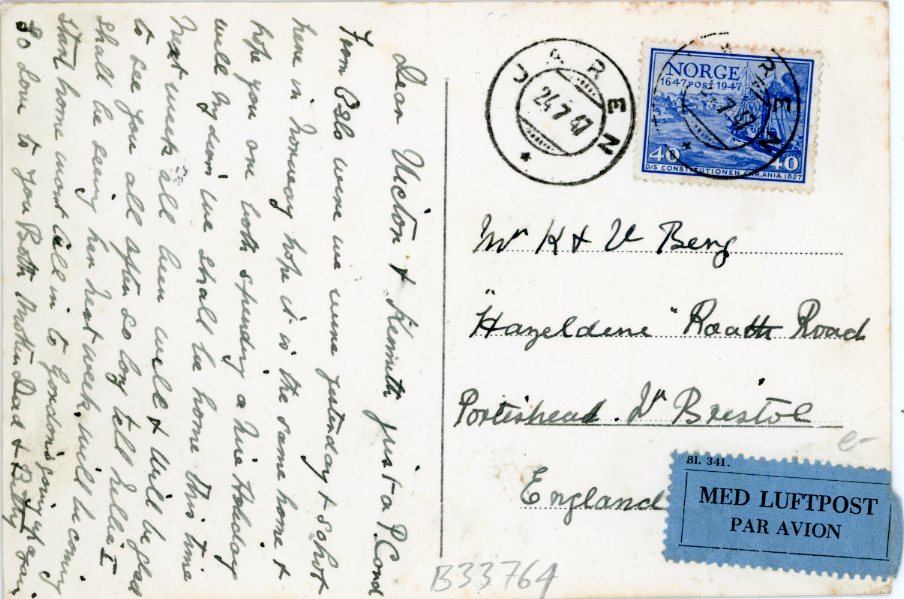 Dear Victor & Kenneth just a P.Card
From Oslo were we were yesterday & so hot
here in Norway hope it is the same home &
hope you are both spending a nice Holiday
will by dem we shall be home this time
next week all been well & will be glad
to see you all after so long tell Nellie I
shall be seing her next week, will be coming
start home wont call in to London going
So Love to you Both Mother Dead & Betty
JAREN
24.7.47
NORGE
1647 POST 1947
40 40
D/S CONSTITUTIONEN ANIA 1827
JAREN
24.7.47
Mr K & V Berg
"Hazeldene" Roath Road
Portishead. Nr Bristol
England
e-
Bl. 341.
MED LUFTPOST
PAR AVION
B33764